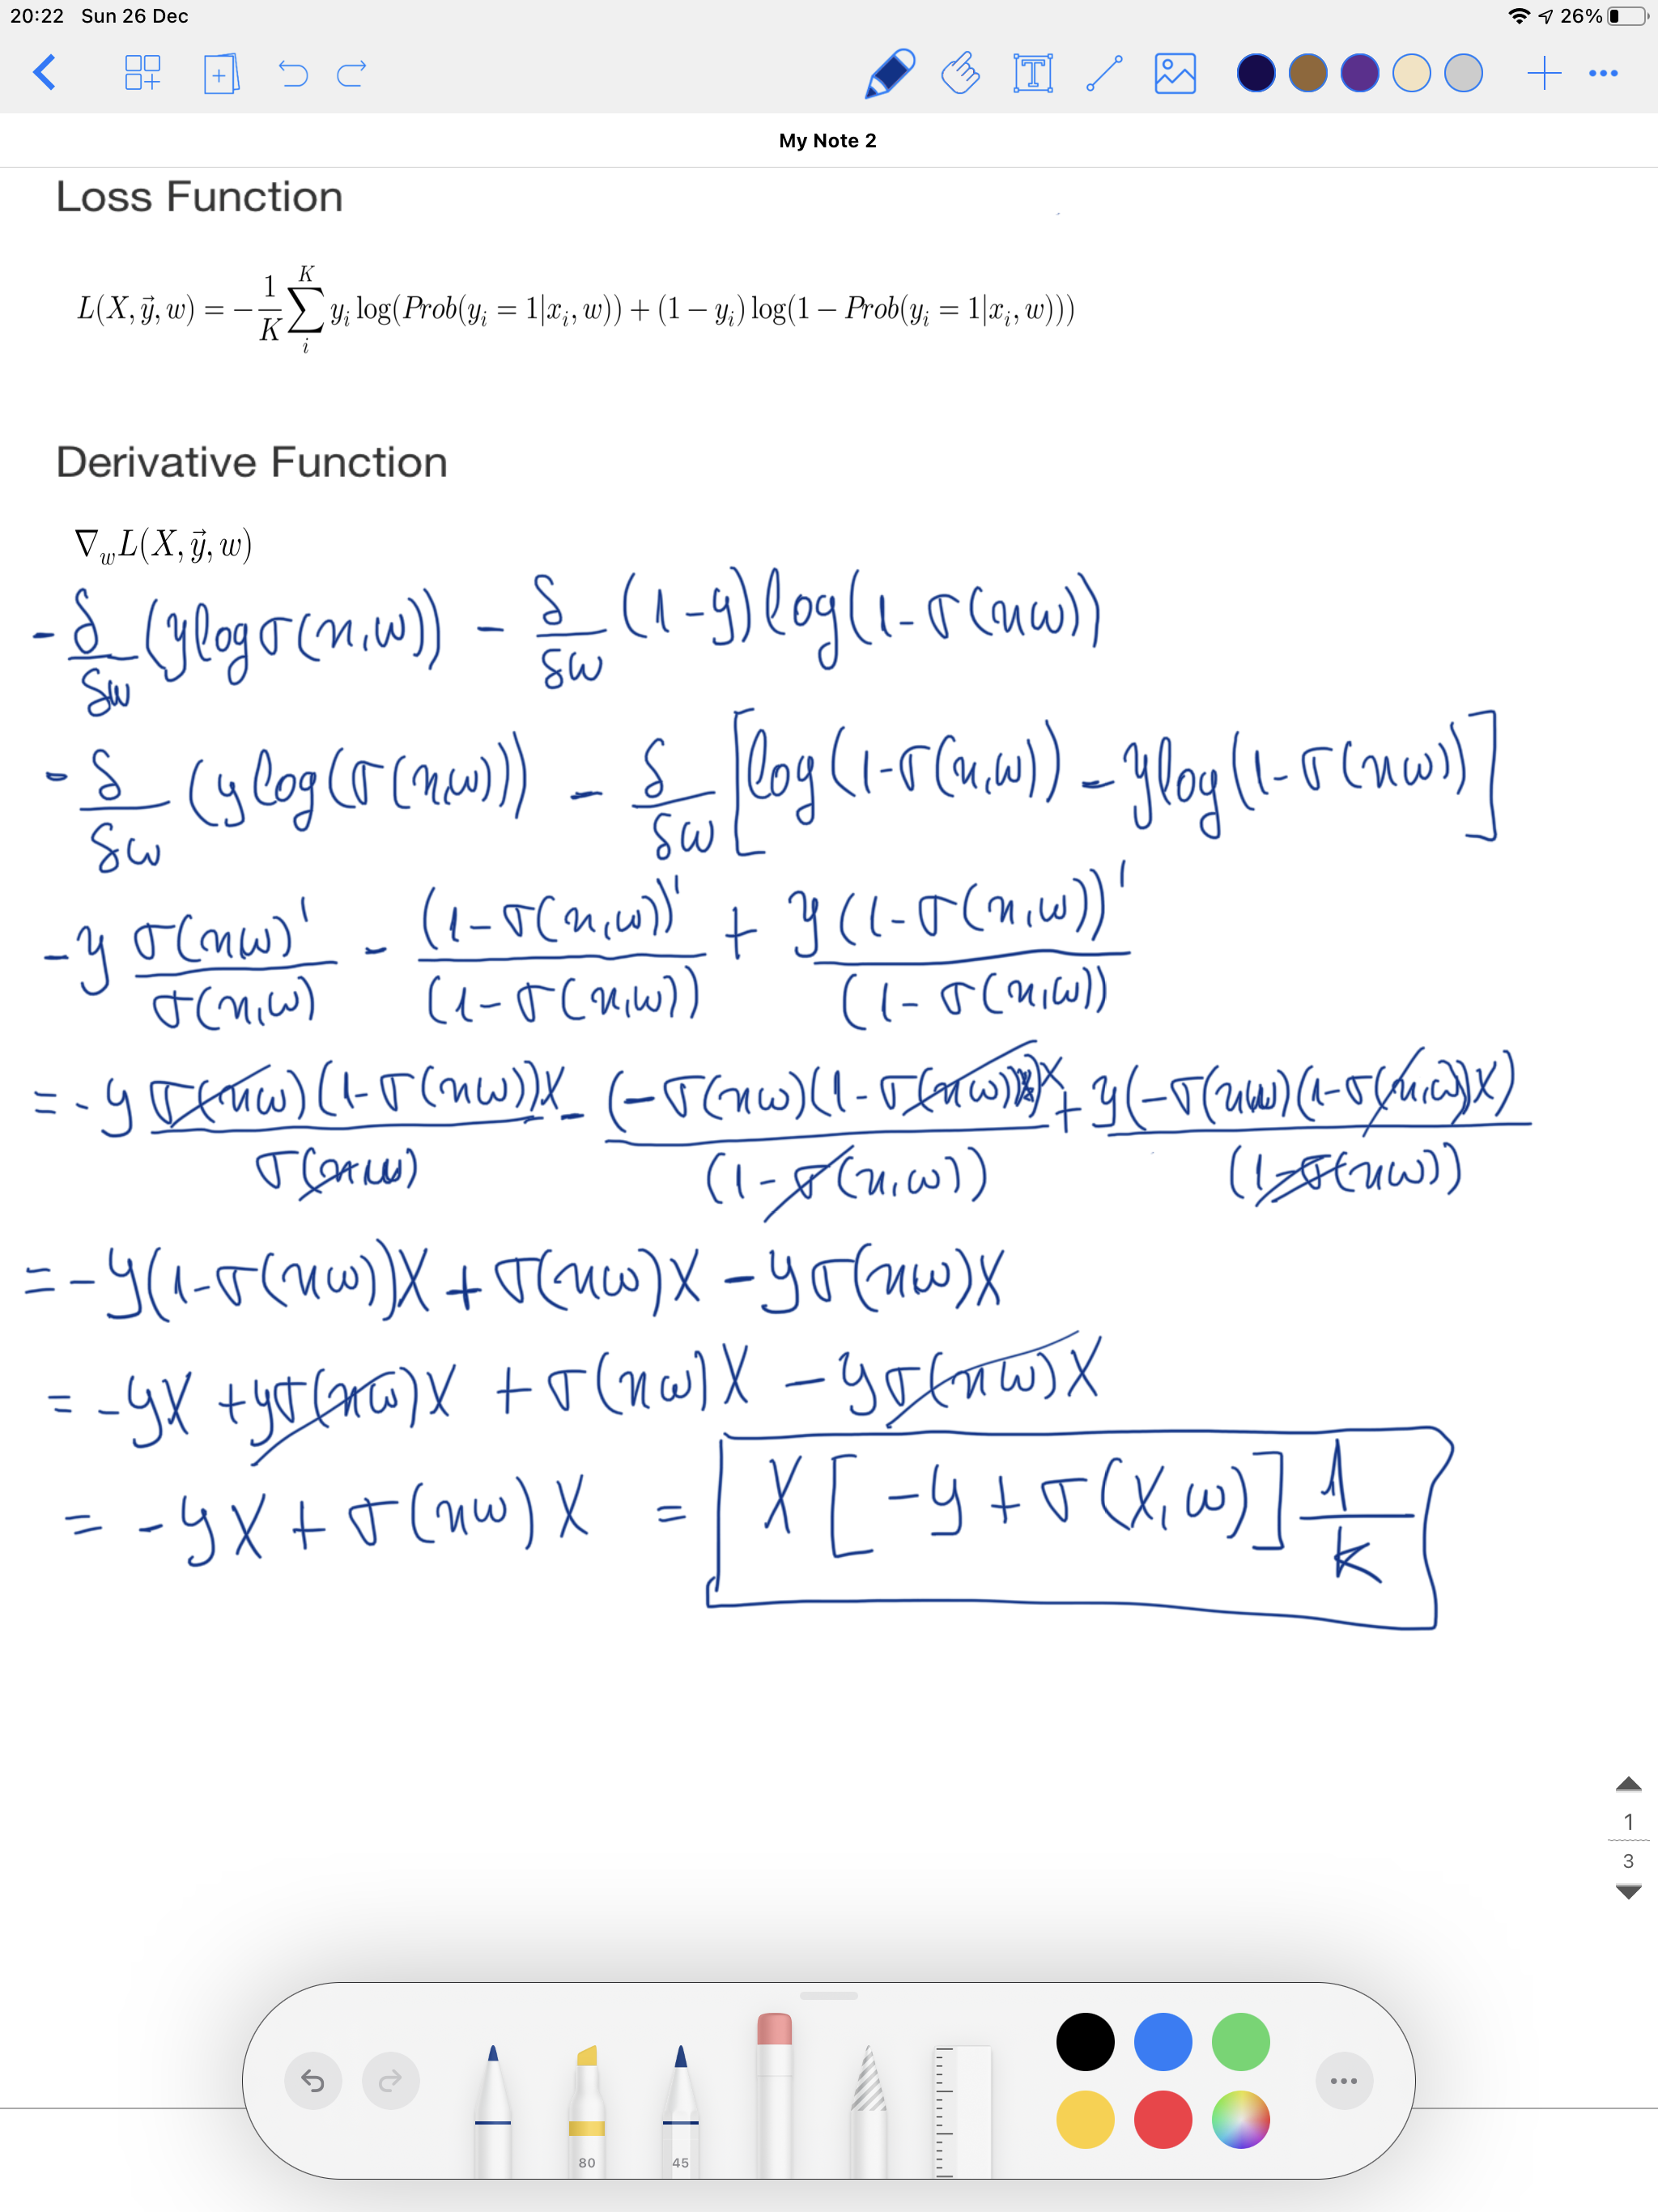 20:22 Sun 26 Dec 26%
My Note 2
Loss Function
L(X, y⃗, w) = −1/K ∑_i^K y_i log(Prob(y_i = 1|x_i, w)) + (1 − y_i) log(1 − Prob(y_i = 1|x_i, w)))
Derivative Function
∇_w L(X, y⃗, w)
- δ/δw (ylogσ(x,w)) - δ/δw (1-y)log(1-σ(xw))
- δ/δw (ylog(σ(x,w))) - δ/δw [log(1-σ(x,w)) - ylog(1-σ(xw))]
-y σ(xw)'/σ(x,w) - (1-σ(x,w))'/(1-σ(x,w)) + y(1-σ(x,w))'/(1-σ(x,w))
= -y σ(xw)(1-σ(xw))X/σ(xw) - (-σ(xw)(1-σ(xw))X/(1-σ(x,w)) + y(-σ(xw)(1-σ(x,w))X)/(1-σ(xw))
= -y(1-σ(xw))X + σ(xw)X - yσ(xw)X
= -yX + yσ(xw)X + σ(xw)X - yσ(xw)X
= -yX + σ(xw)X = X[-y + σ(X,w)] 1/k
1
3
80 45